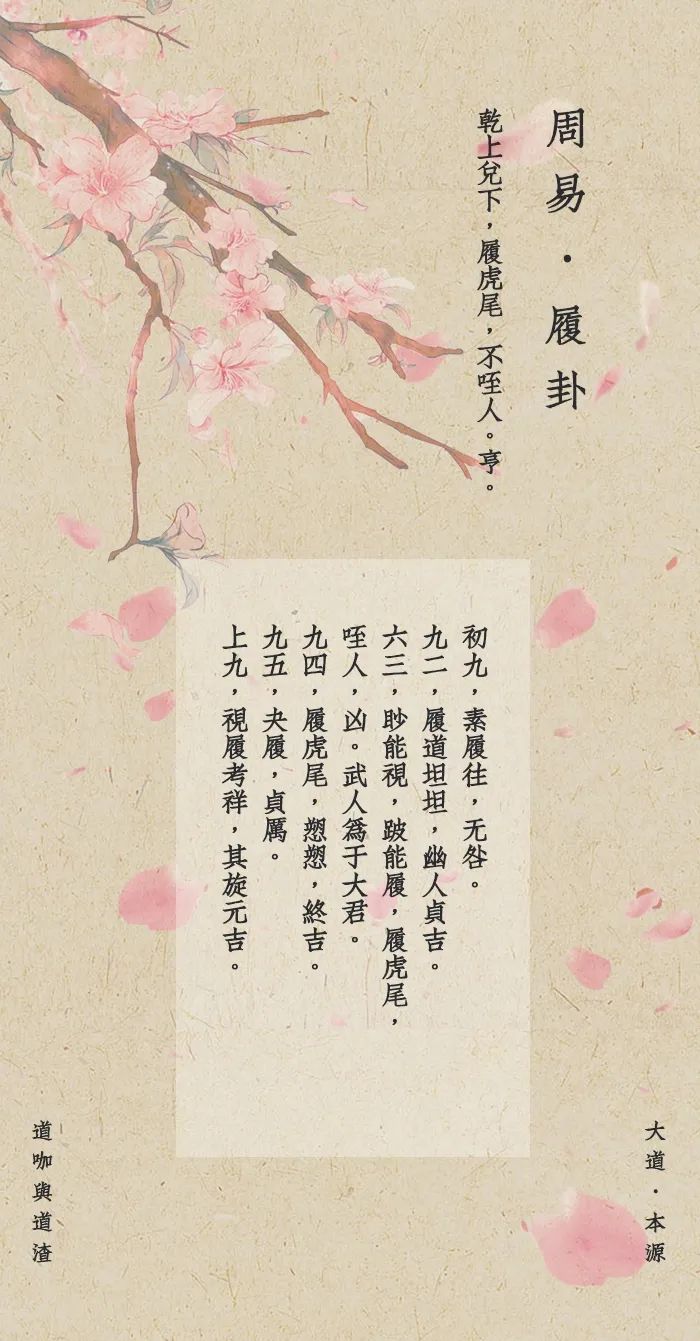 周易·履卦
乾上兌下，履虎尾，不咥人。亨。
初九，素履往，无咎。
九二，履道坦坦，幽人貞吉。
六三，眇能視，跛能履，履虎尾，
咥人，凶。武人為于大君。
九四，履虎尾，愬愬，終吉。
九五，夬履，貞厲。
上九，視履考祥，其旋元吉。
大道·本源
道咖與道渣